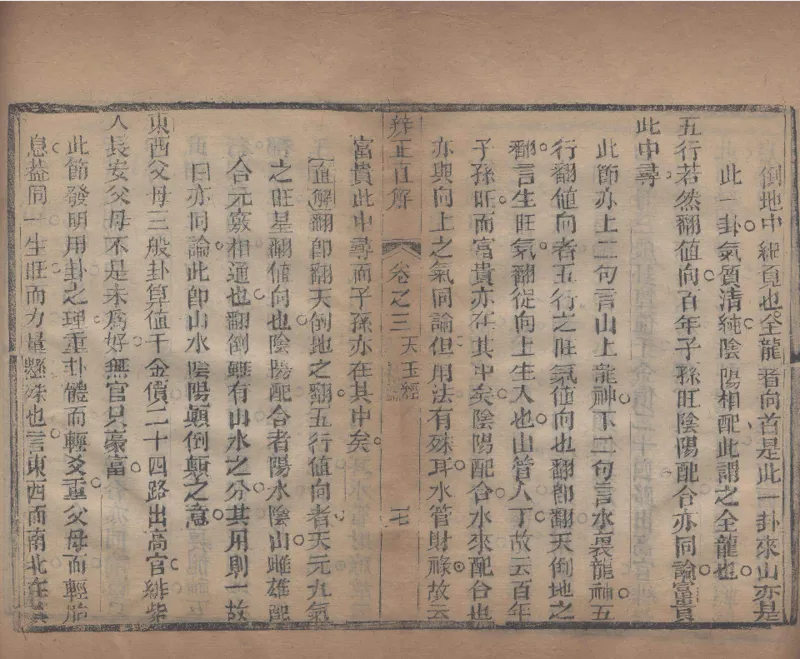 倒地中細覓也全龍者向首是此一卦來山亦是
此一卦氣質清純陰陽相配此謂之全龍也
五行若然翻值向百年子孫旺陰陽配合亦同論富貴
此中尋
此節亦上二句言山上龍神下二句言水裏龍神五
行翻值向者五行之旺氣值向也翻卽翻天倒地之
翻言生旺氣翻從向上生入也山管人丁故云百年
子孫旺而富貴亦在其中矣陰陽配合水來配合也
亦與向上之氣同論但用法有殊耳水管財祿故云
辨正直解 卷之三 天玉經
富貴此中尋而子孫亦在其中矣
直解翻卽翻天倒地之翻五行值向者天元九氣
之旺星翻值向也陰陽配合者陽水陰山雌雄配
合元竅相通也翻倒雖有山水之分其用則一故
曰亦同論此卽山水陰陽顛倒顛之意
東西父母三般卦算值千金價二十四路出高官緋紫
人長安父母不是未爲好無官只豪富
此節發明用卦之理重卦體而輕爻重父母而輕
息葢同一生旺而力量懸殊也言東西而南北在